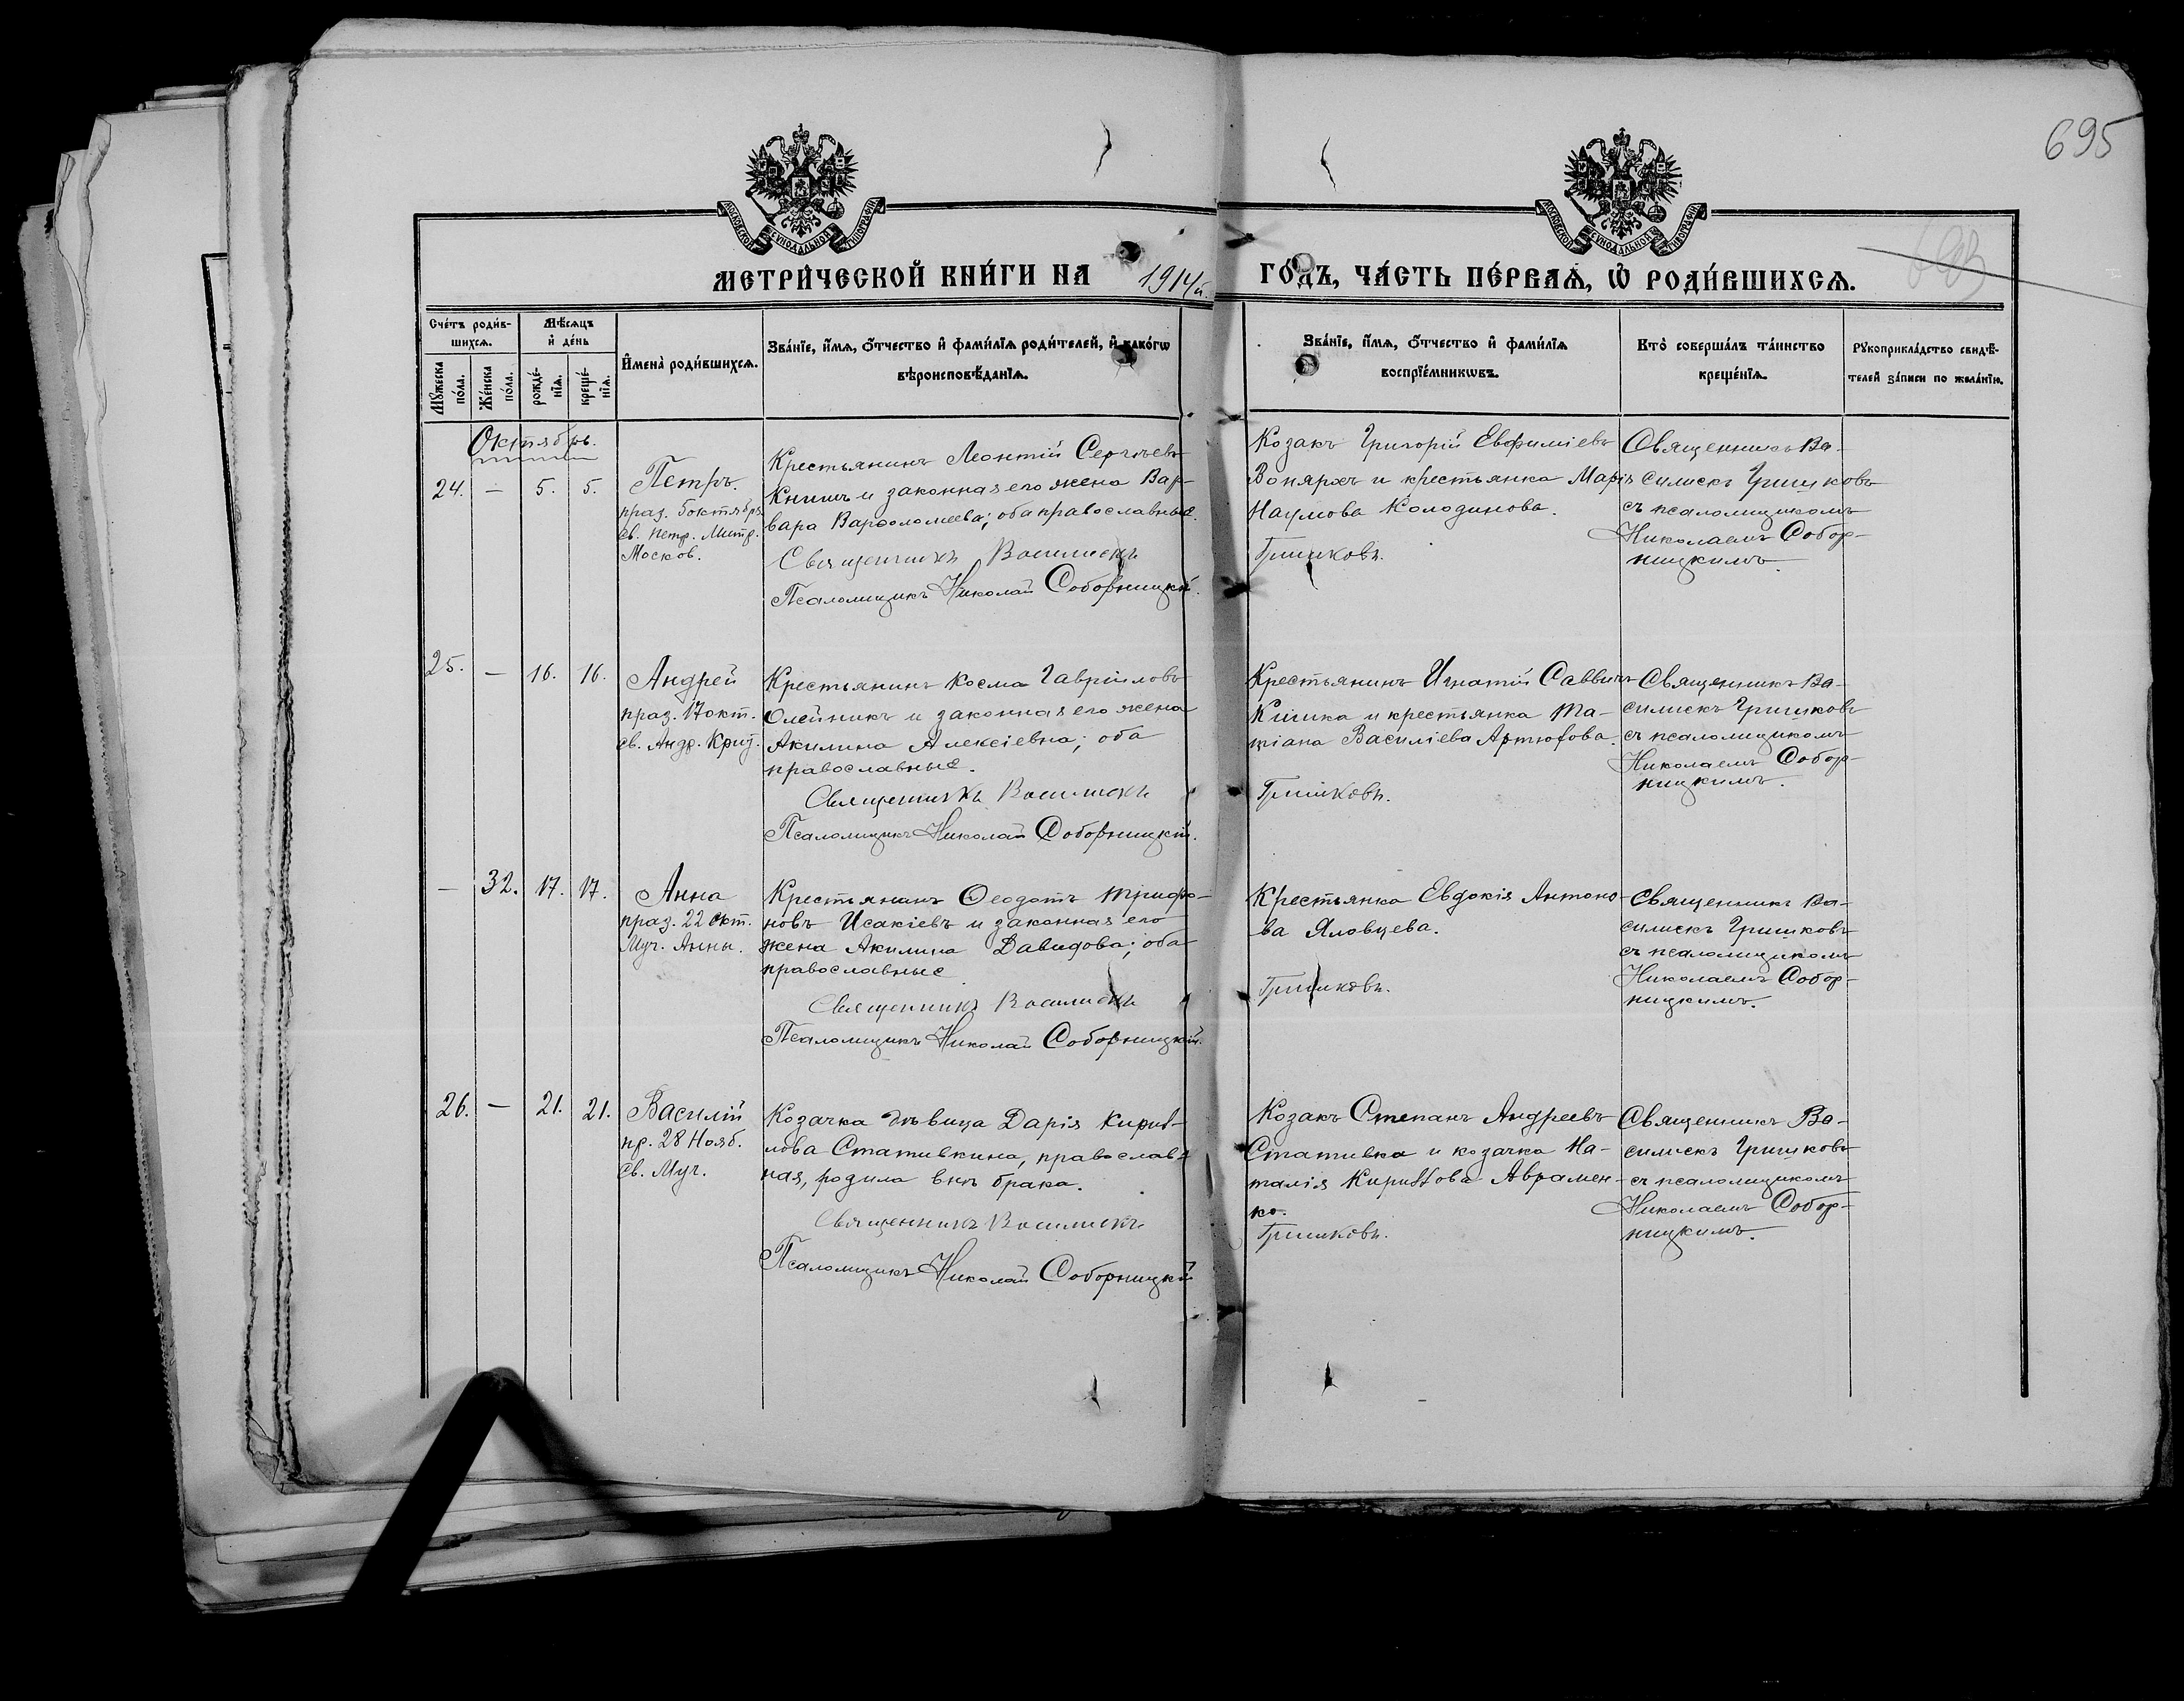 695
МОСКОВСКОЙ СѴНОДАЛЬНОЙ ТИПОГРАФІИ
МОСКОВСКОЙ СѴНОДАЛЬНОЙ ТИПОГРАФІИ
МЕТРИ́ЧЕСКОЙ КНИ́ГИ НА 1914й. ГО́ДЪ, ЧА́СТЬ ПЕ́РВАѦ, Ѡ҆ РОДИ́ВШИХСѦ.
Сче́тъ роди́в-
шихсѧ.
Мꙋ́жеска по́ла.
Же́нска по́ла.
Мѣ́сѧцъ
и҆ де́нь
рожде́-
нїѧ.
креще́-
нїѧ.
И҆мена̀ роди́вшихсѧ.
Зва́нїе, и҆́мѧ, ѻ҆́тчество и҆ фами́лїѧ роди́телей, и҆ како́гѡ
вѣроисповѣ́данїѧ.
Зва́нїе, и҆́мѧ, ѻ҆́тчество и҆ фами́лїѧ
воспрїе́мникѡвъ.
Кто̀ соверша́лъ та́инство
креще́нїѧ.
Рꙋкоприкла́дство свидѣ́-
телей за́писи по жела́нїю.
Октябрь.
24. — 5. 5.
Петръ.
праз. 5 октября
св. Петр. Митр.
Москов.
Крестьянинъ Леонтій Сергѣевъ
Книшъ и законная его жена Вар-
вара Варѳоломеева; оба православные.
Священникъ Василискъ
Псаломщикъ Николай Соборницкій.
Козакъ Григорій Евфиміевъ
Бонярхъ и крестьянка Марія
Наумова Колодинова.
Гришковъ.
Священникъ Ва-
силискъ Гришковъ
съ псаломщикомъ
Николаемъ Собор-
ницкимъ.
25. — 16. 16.
Андрей
праз. 17 окт.
св. Андр. Криц.
Крестьянинъ Косма Гавріиловъ
Олейникъ и законная его жена
Акилина Алексіевна; оба
православные.
Священникъ Василискъ
Псаломщикъ Николай Соборницкій.
Крестьянинъ Игнатій Саввинъ
Кишка и крестьянка Та-
тіана Василіева Артюхова.
Гришковъ.
Священникъ Ва-
силискъ Гришковъ
съ псаломщикомъ
Николаемъ Собор-
ницкимъ.
— 32. 17. 17.
Анна
праз. 22 окт.
Муч. Анны.
Крестьянинъ Ѳеодотъ Трифо-
новъ Исакіевъ и законная его
жена Акилина Давидова; оба
православные
Священникъ Василискъ
Псаломщикъ Николай Соборницкій.
Крестьянка Евдокія Антоно-
ва Яловцева.
Гришковъ.
Священникъ Ва-
силискъ Гришковъ
съ псаломщикомъ
Николаемъ Собор-
ницкимъ.
26. — 21. 21.
Василій
пр. 28 Нояб.
св. Муч.
Козачка дѣвица Дарія Кирил-
лова Стативкина, православ-
ная, родила внѣ брака.
Священникъ Василискъ
Псаломщикъ Николай Соборницкій
Козакъ Степанъ Андреевъ
Стативка и козачка На-
талія Кириллова Аврамен-
ко.
Гришковъ.
Священникъ Ва-
силискъ Гришковъ
съ псаломщикомъ
Николаемъ Собор-
ницкимъ.